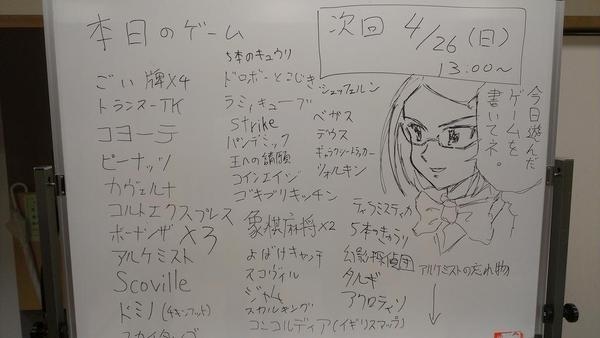 本日のゲーム
次回 4/26(日)
13:00〜
今日遊んだ
ゲームを
書いてネ。
ごいた牌×4
トランスーTK
コヨーテ
ピーナッツ
カヴェルナ
コルトエクスプレス
ボーナンザ×3
アルケミスト
Scoville
ドミノ(チキンフット)
5本のキュウリ
ドロボーとこじき
ラミィキューブ
Strike
パンデミック
王への請願
コインエイジ
ゴキブリキッチン
象棋麻将×2
よばけキャッチ
スコヴィル
ジャム
スカルキング
コンコルディア(イギリスマップ)
シェッフェルン
ペガス
デウス
ギャラクシートラッカー
ツォルキン
ティラミスティカ
5本のきゅうり
幻影探偵団
タルギ
アクロティリ
アルケミストの忘れ物